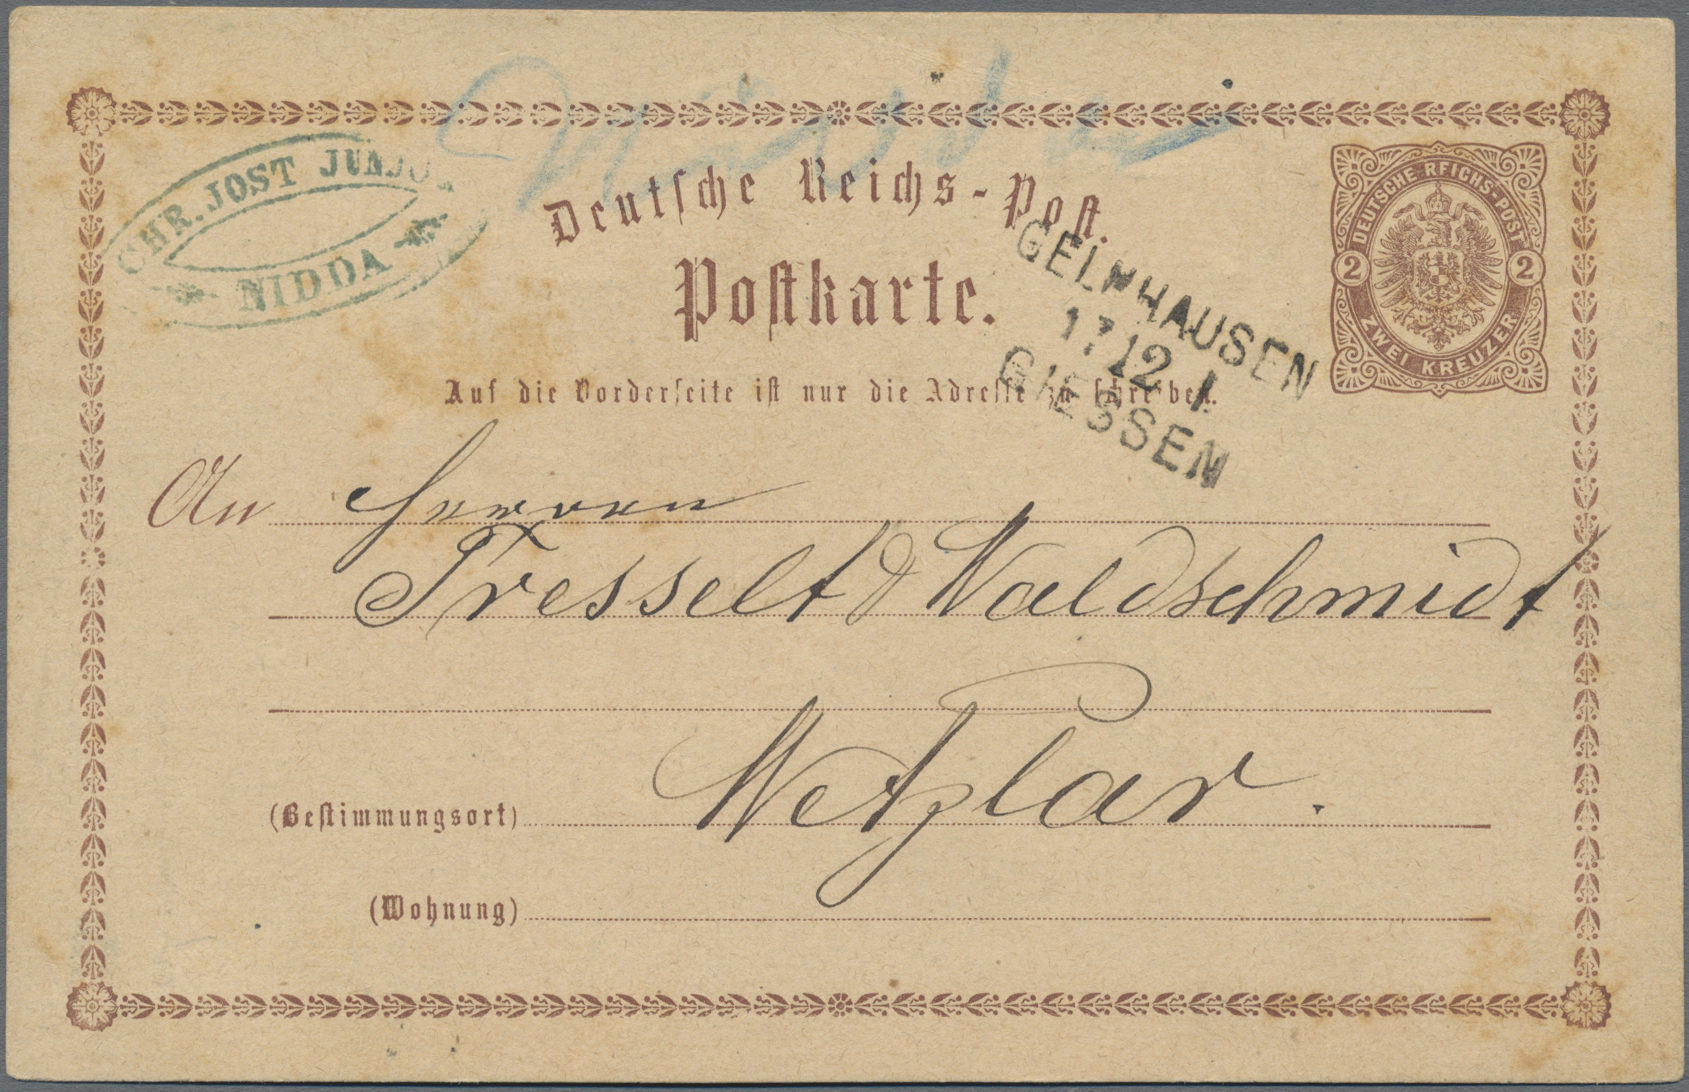 Nidda
CHR. JOST JUNIOR
NIDDA
Deutsche Reichs-Post.
Postkarte.
DEUTSCHE REICHS-POST
2 2
ZWEI KREUZER
GELNHAUSEN
17 12 I
GIESSEN
Auf die Vorderseite ist nur die Adresse zu schreiben.
An Herren
Tresselt & Waldschmidt
Wetzlar.
(Bestimmungsort)
(Wohnung)